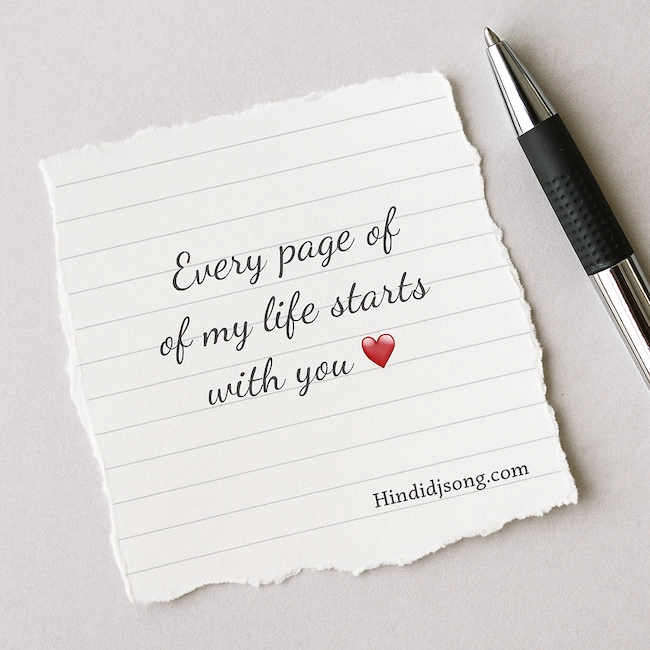 Every page of
of my life starts
with you ❤️
Hindidjsong.com